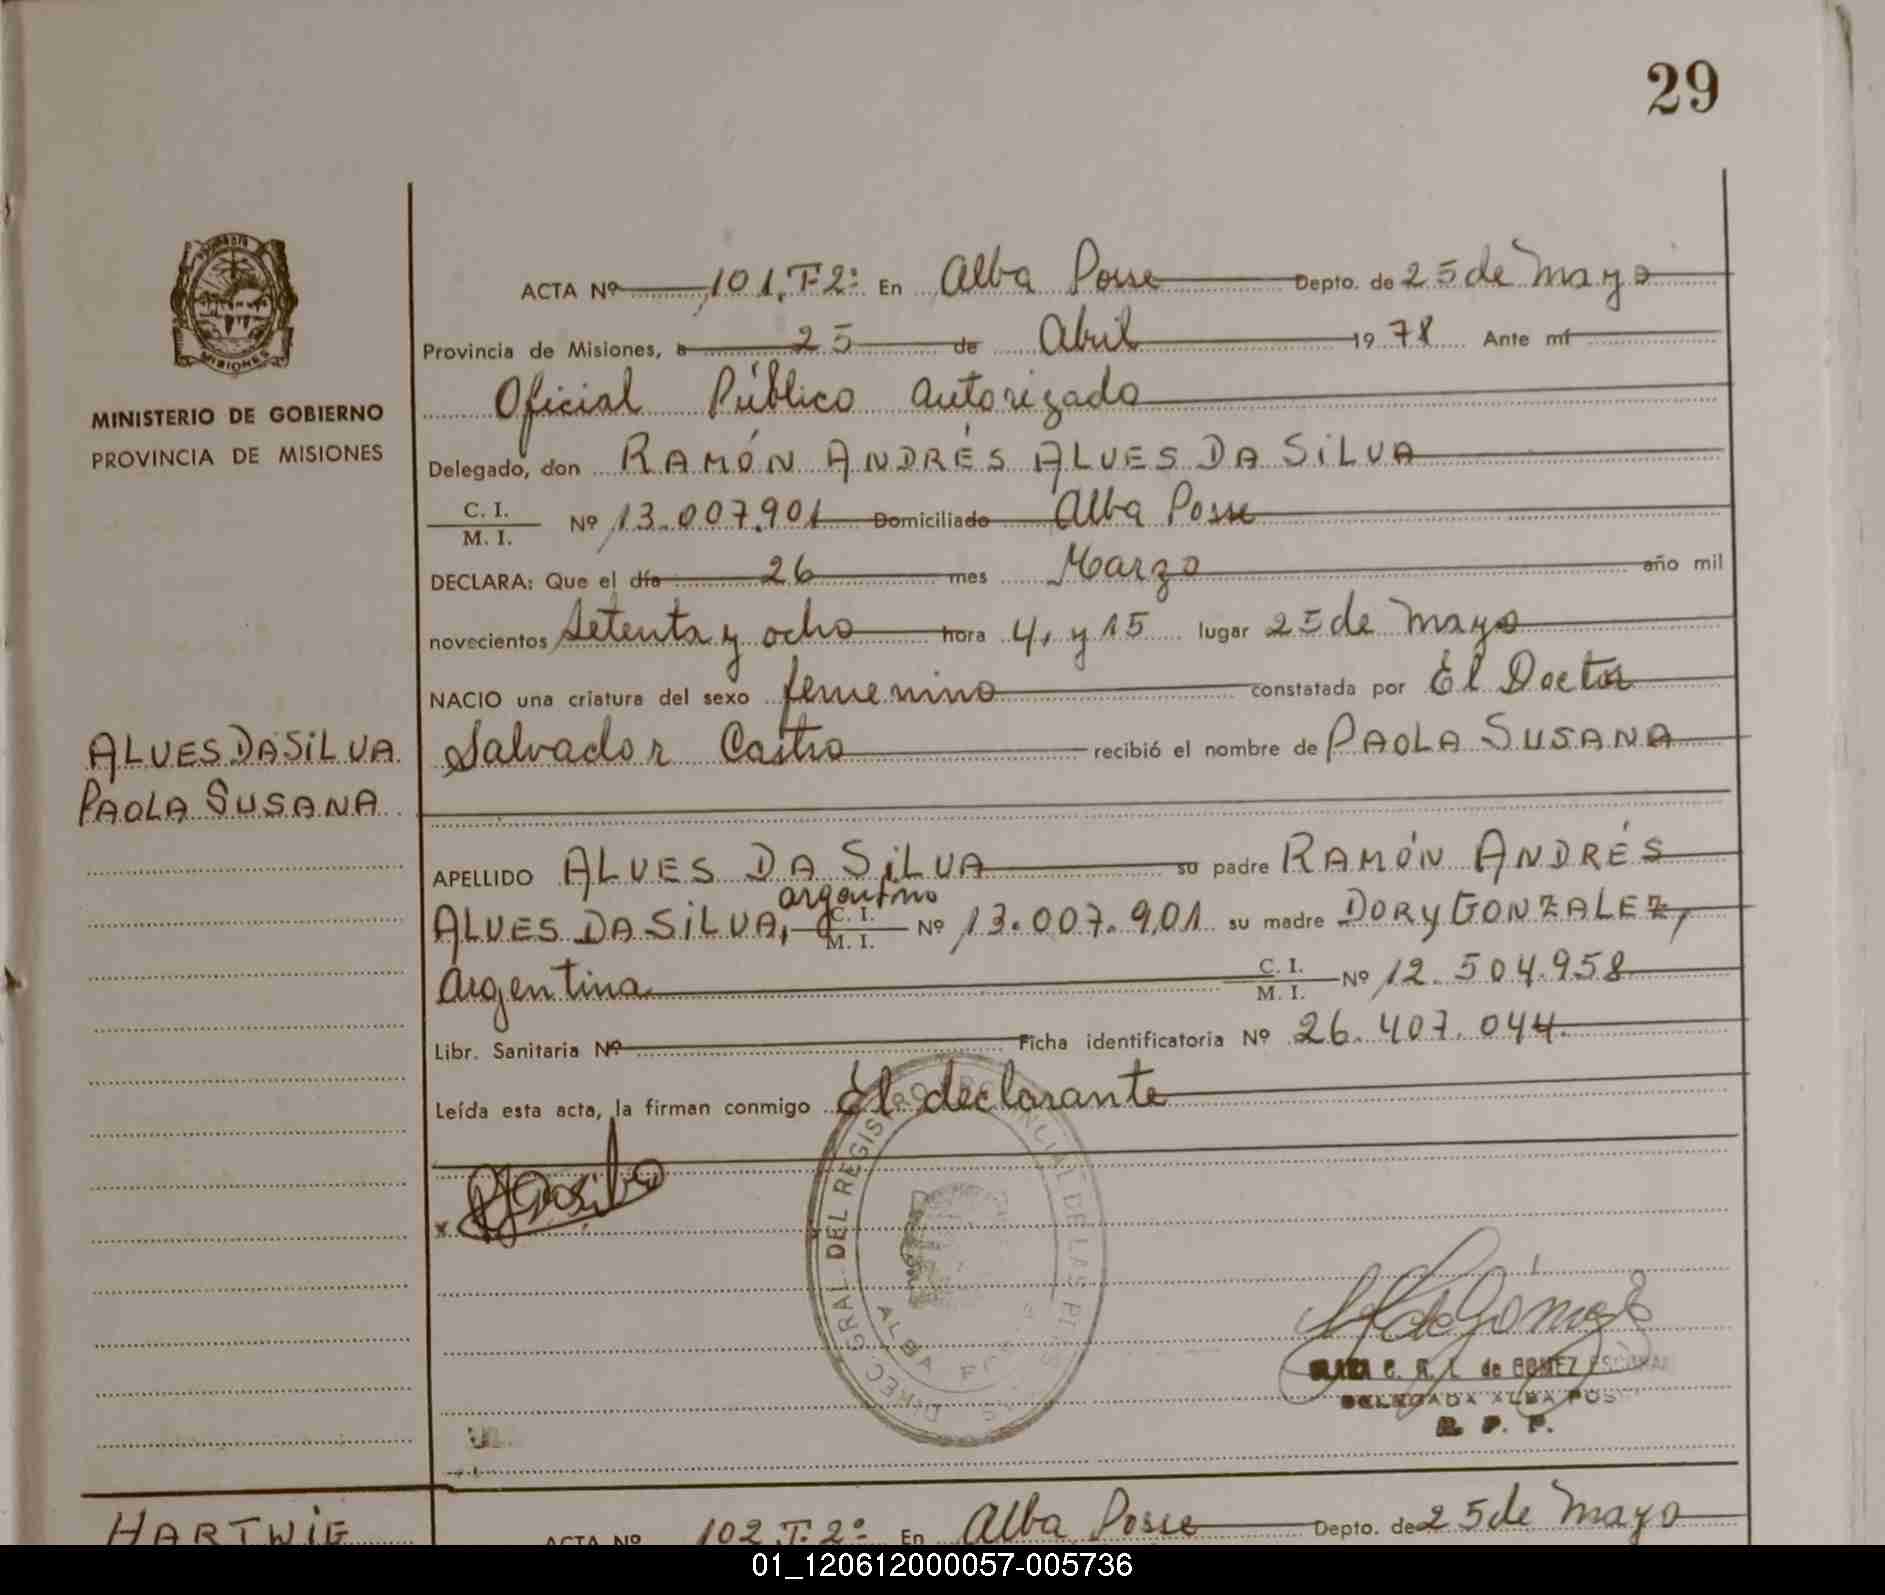 29
MINISTERIO DE GOBIERNO
PROVINCIA DE MISIONES
MISIONES
ACTA Nº 101, T-2º En Alba Posse Depto. de 25 de Mayo
Provincia de Misiones, a 25 de Abril 1978 Ante mí
Oficial Público autorizado
Delegado, don RAMÓN ANDRÉS ALVES DA SILVA
C. I. / M. I. Nº 13.007.901 Domiciliado Alba Posse
DECLARA: Que el día 26 mes Marzo año mil
novecientos Setenta y ocho hora 4, y 15 lugar 25 de Mayo
NACIO una criatura del sexo femenino constatada por El Doctor
Salvador Castro recibió el nombre de PAOLA SUSANA
ALVES DA SILVA
PAOLA SUSANA
APELLIDO ALVES DA SILVA su padre RAMÓN ANDRÉS
argentino
ALVES DA SILVA, C. I. / M. I. Nº 13.007.901 su madre DORY GONZALEZ,
Argentina C. I. / M. I. Nº 12.504.958
Libr. Sanitaria Nº Ficha identificatoria Nº 26.407.044
Leída esta acta, la firman conmigo El declarante
DIREC. GRAL DEL REGISTRO PROVINCIAL DE LAS
ALBA
C. R. L. de GOMEZ
DELEGADA ALBA POS
R. P. P.
HARTWIG
ACTA Nº 102 T-2º En Alba Posse Depto. de 25 de Mayo
01_120612000057-005736